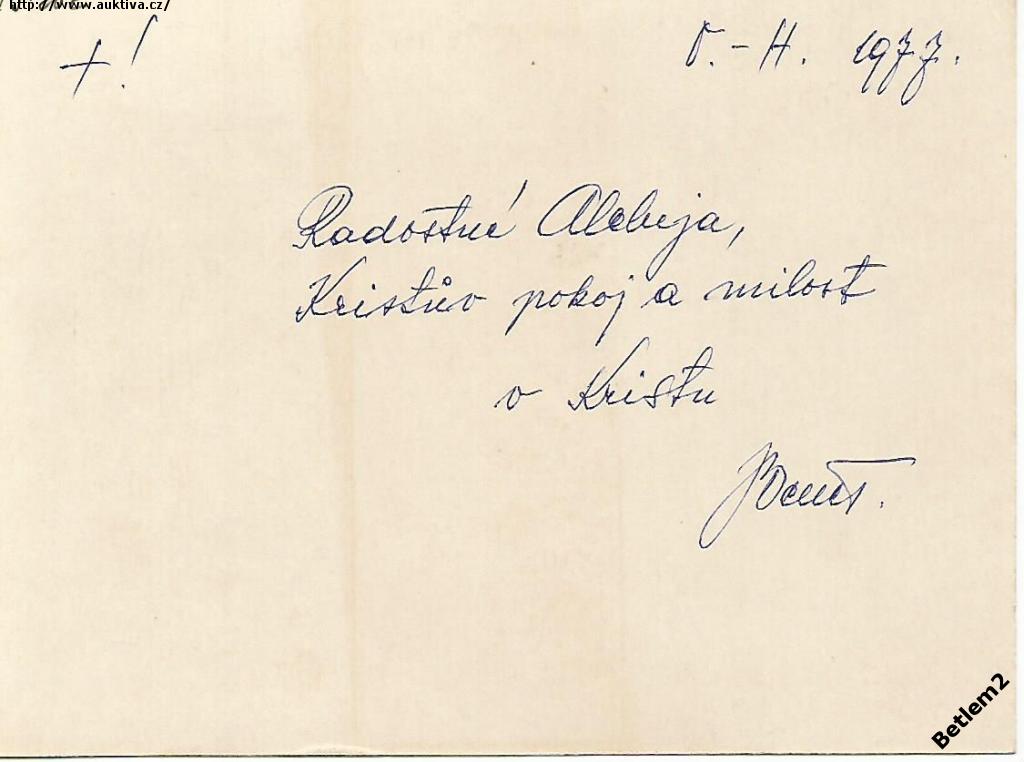 http://www.auktiva.cz/
+!
V.-H. 1977.
Radostné Aleluja,
Kristův pokoj a milost
v Kristu
Betlem2